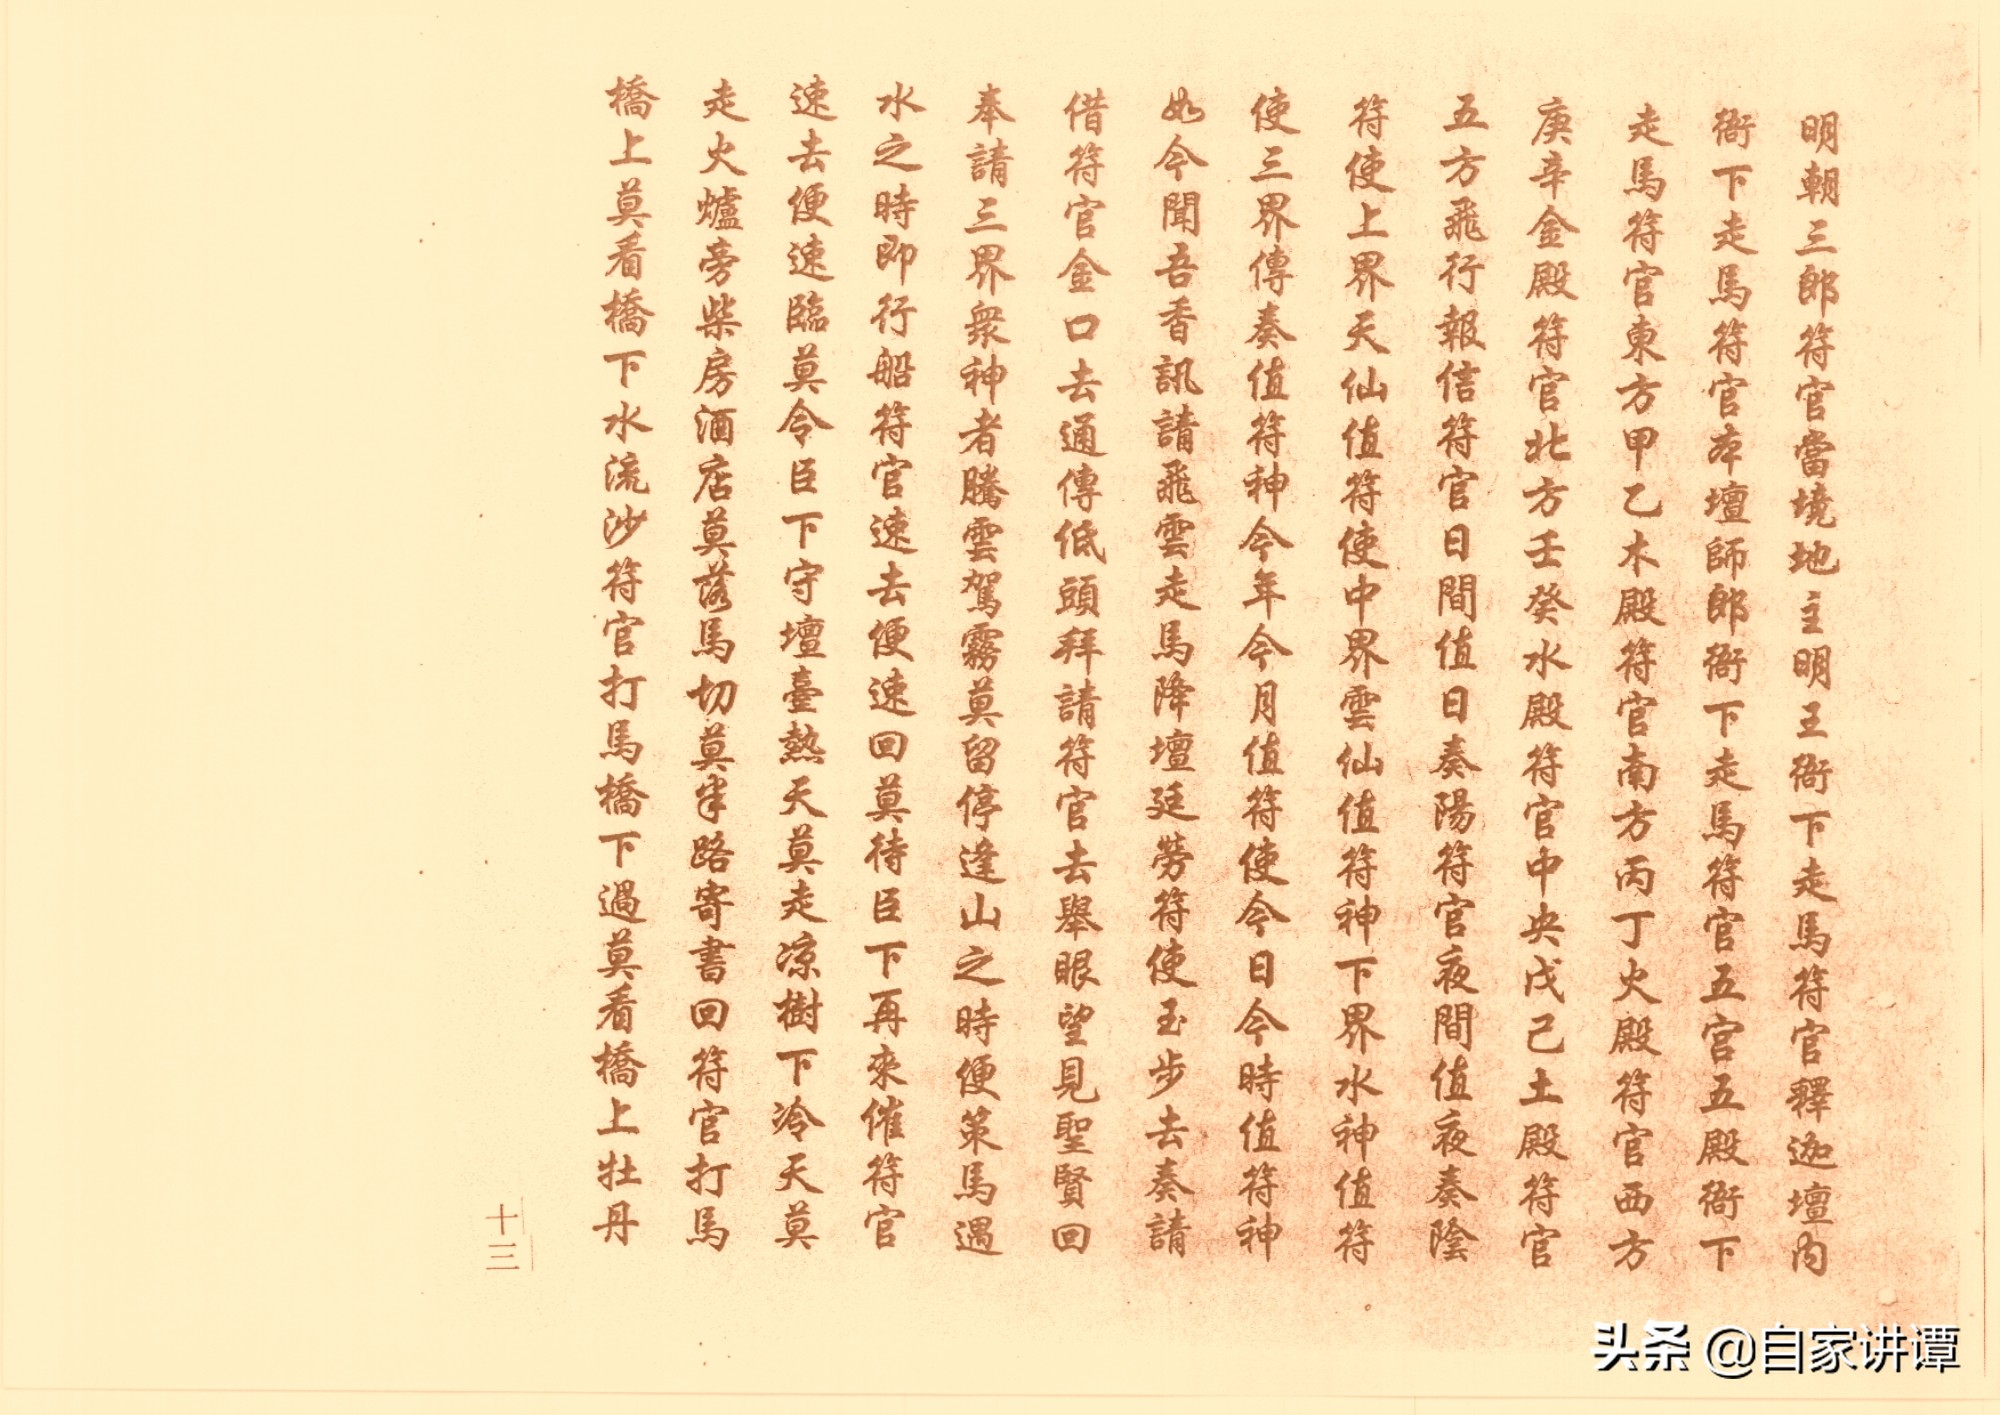 明朝三郎符官當境地主明王衙下走馬符官釋迦壇内
衙下走馬符官本壇師郎衙下走馬符官五宫五殿衙下
走馬符官東方甲乙木殿符官南方丙丁火殿符官西方
庚辛金殿符官北方壬癸水殿符官中央戊己土殿符官
五方飛行報信符官日間值日奏陽符官夜間值夜奏陰
符使上界天仙值符使中界雲仙值符神下界水神值符
使三界傳奏值符神今年今月值符使今日今時值符神
如今聞吾香訊請飛雲走馬降壇廷勞符使玉步去奏請
借符官金口去通傳低頭拜請符官去舉眼望見聖賢回
奉請三界衆神者騰雲駕霧莫留停逢山之時便策馬遇
水之時即行船符官速去便速回莫待臣下再來催符官
速去便速臨莫令臣下守壇臺熱天莫走凉樹下冷天莫
走火爐旁柴房酒店莫落馬切莫半路寄書回符官打馬
橋上莫看橋下水流沙符官打馬橋下過莫看橋上牡丹
十三
头条 @自家讲谭